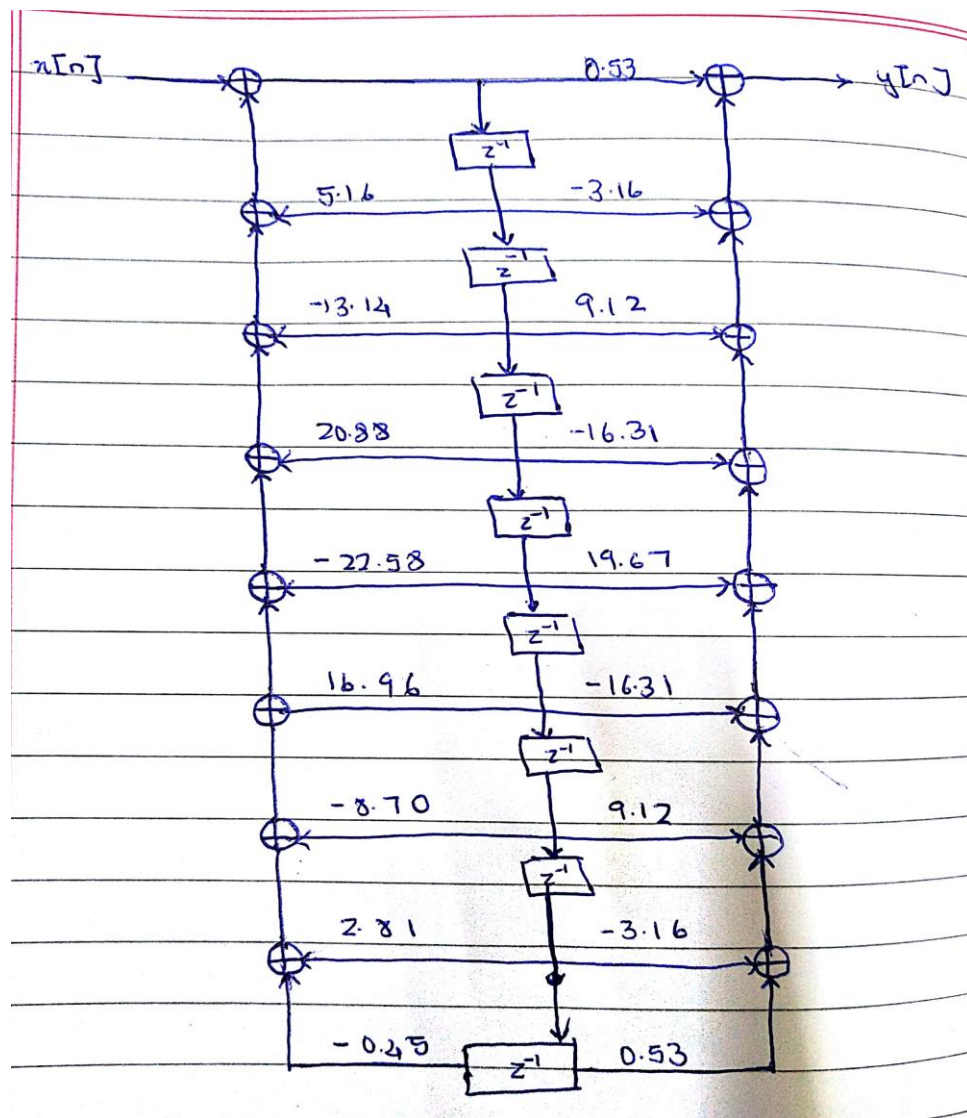 x[n] 0.53 y[n]
z⁻¹
5.16 -3.16
z⁻¹
-13.14 9.12
z⁻¹
20.88 -16.31
z⁻¹
-22.58 19.67
z⁻¹
16.96 -16.31
z⁻¹
-8.70 9.12
z⁻¹
2.81 -3.16
-0.45 z⁻¹ 0.53